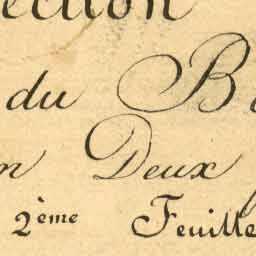 ection
du B
n Deux
2ème Feuille